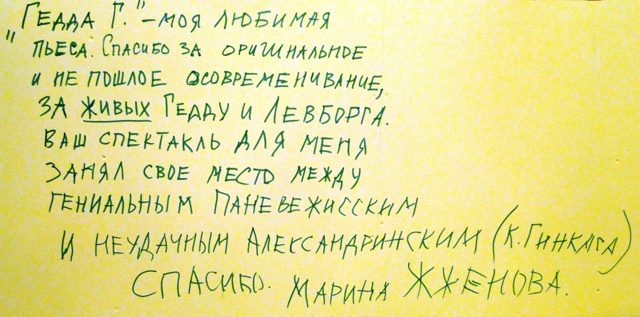 "Гедда Г." – моя любимая
пьеса. Спасибо за оригинальное
и не пошлое осовременивание,
за живых Гедду и Левборга.
Ваш спектакль для меня
занял свое место между
гениальным Паневежисским
и неудачным Александринским (К. Гинкаса)
Спасибо. Марина Жженова.